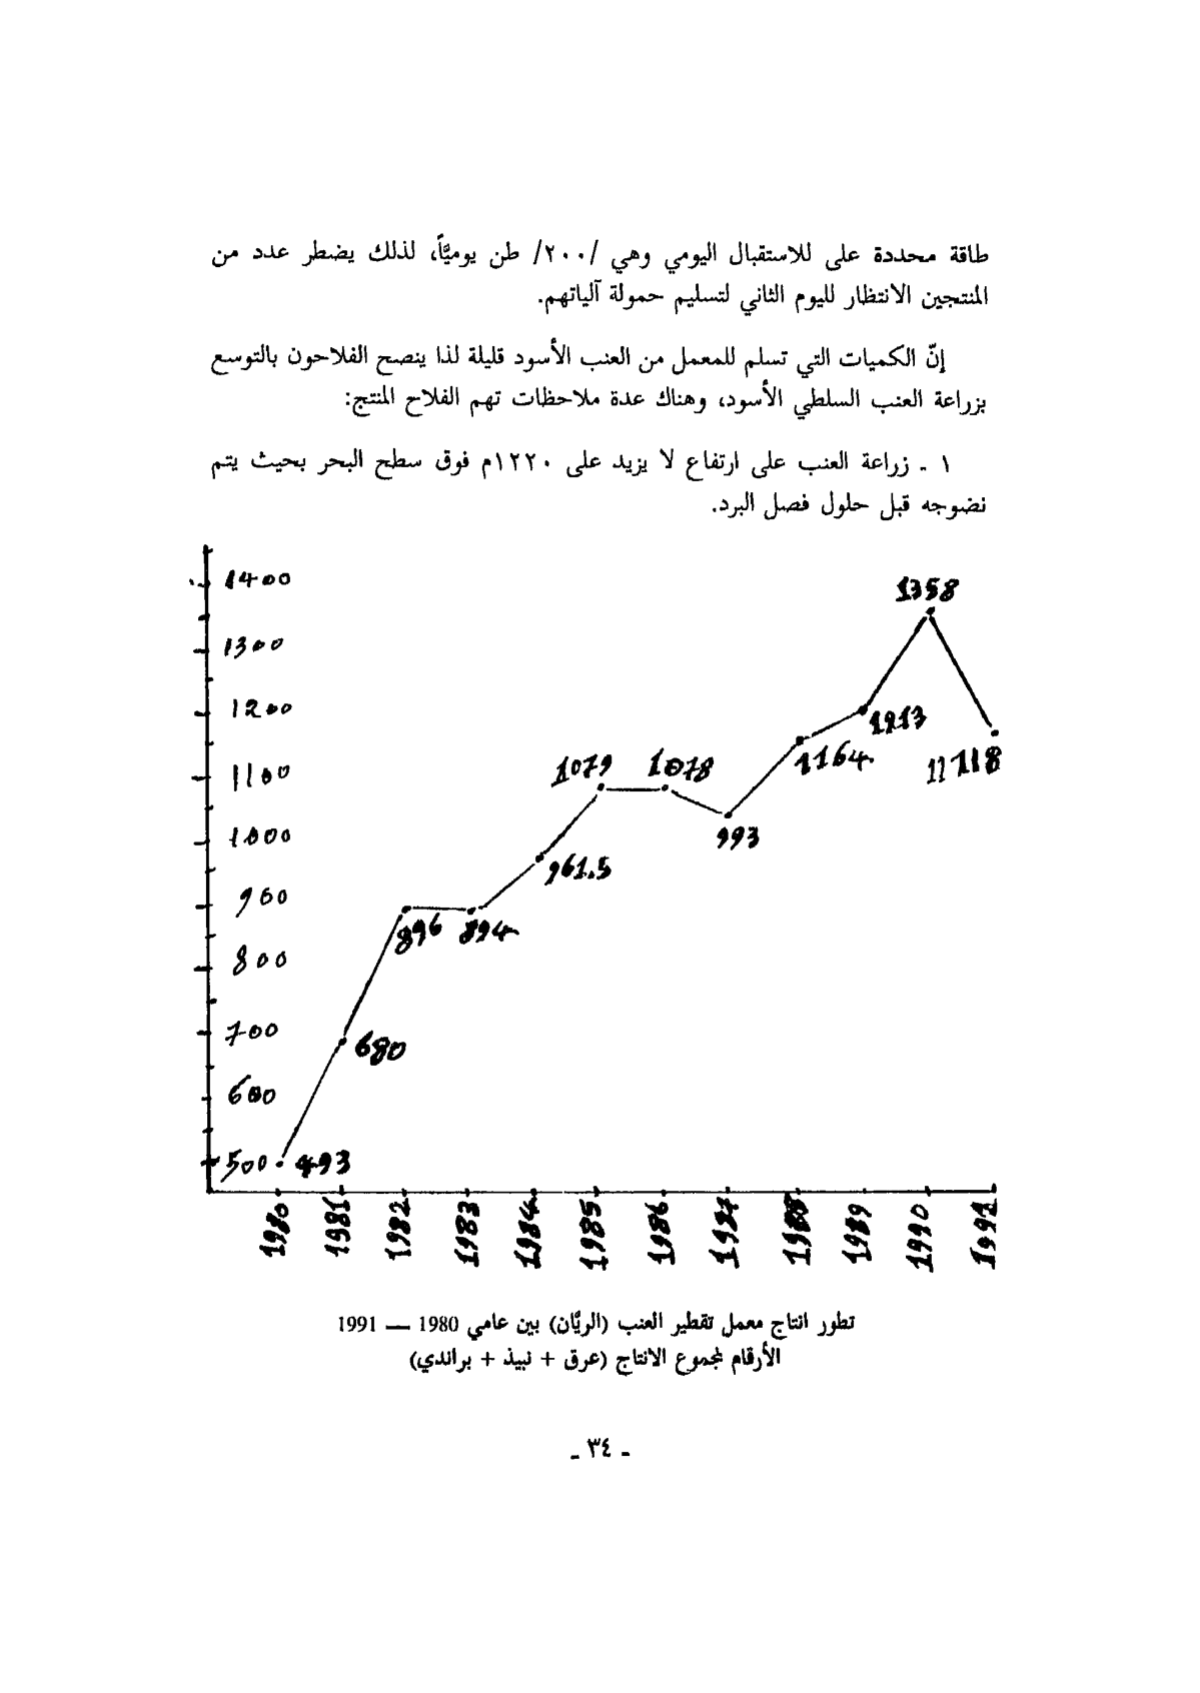 طاقة محددة على للاستقبال اليومي وهي /٢٠٠/ طن يوميًّاً، لذلك يضطر عدد من
المنتجين الانتظار لليوم الثاني لتسليم حمولة آلياتهم.
إنّ الكميات التي تسلم للمعمل من العنب الأسود قليلة لذا ينصح الفلاحون بالتوسع
بزراعة العنب السلطي الأسود، وهناك عدة ملاحظات تهم الفلاح المنتج:
١ - زراعة العنب على ارتفاع لا يزيد على ١٢٢٠م فوق سطح البحر بحيث يتم
نضوجه قبل حلول فصل البرد.
1400
1358
1300
1200
1213
1164
1079
1078
1100
1000
993
961.5
900
896
894
800
700
680
600
500
493
1980
1981
1982
1983
1984
1985
1986
1987
1988
1989
1990
1991
تطور انتاج معمل تقطير العنب (الريَّان) بين عامي 1980 — 1991
الأرقام لمجموع الانتاج (عرق + نبيذ + براندي)
- ٣٤ -